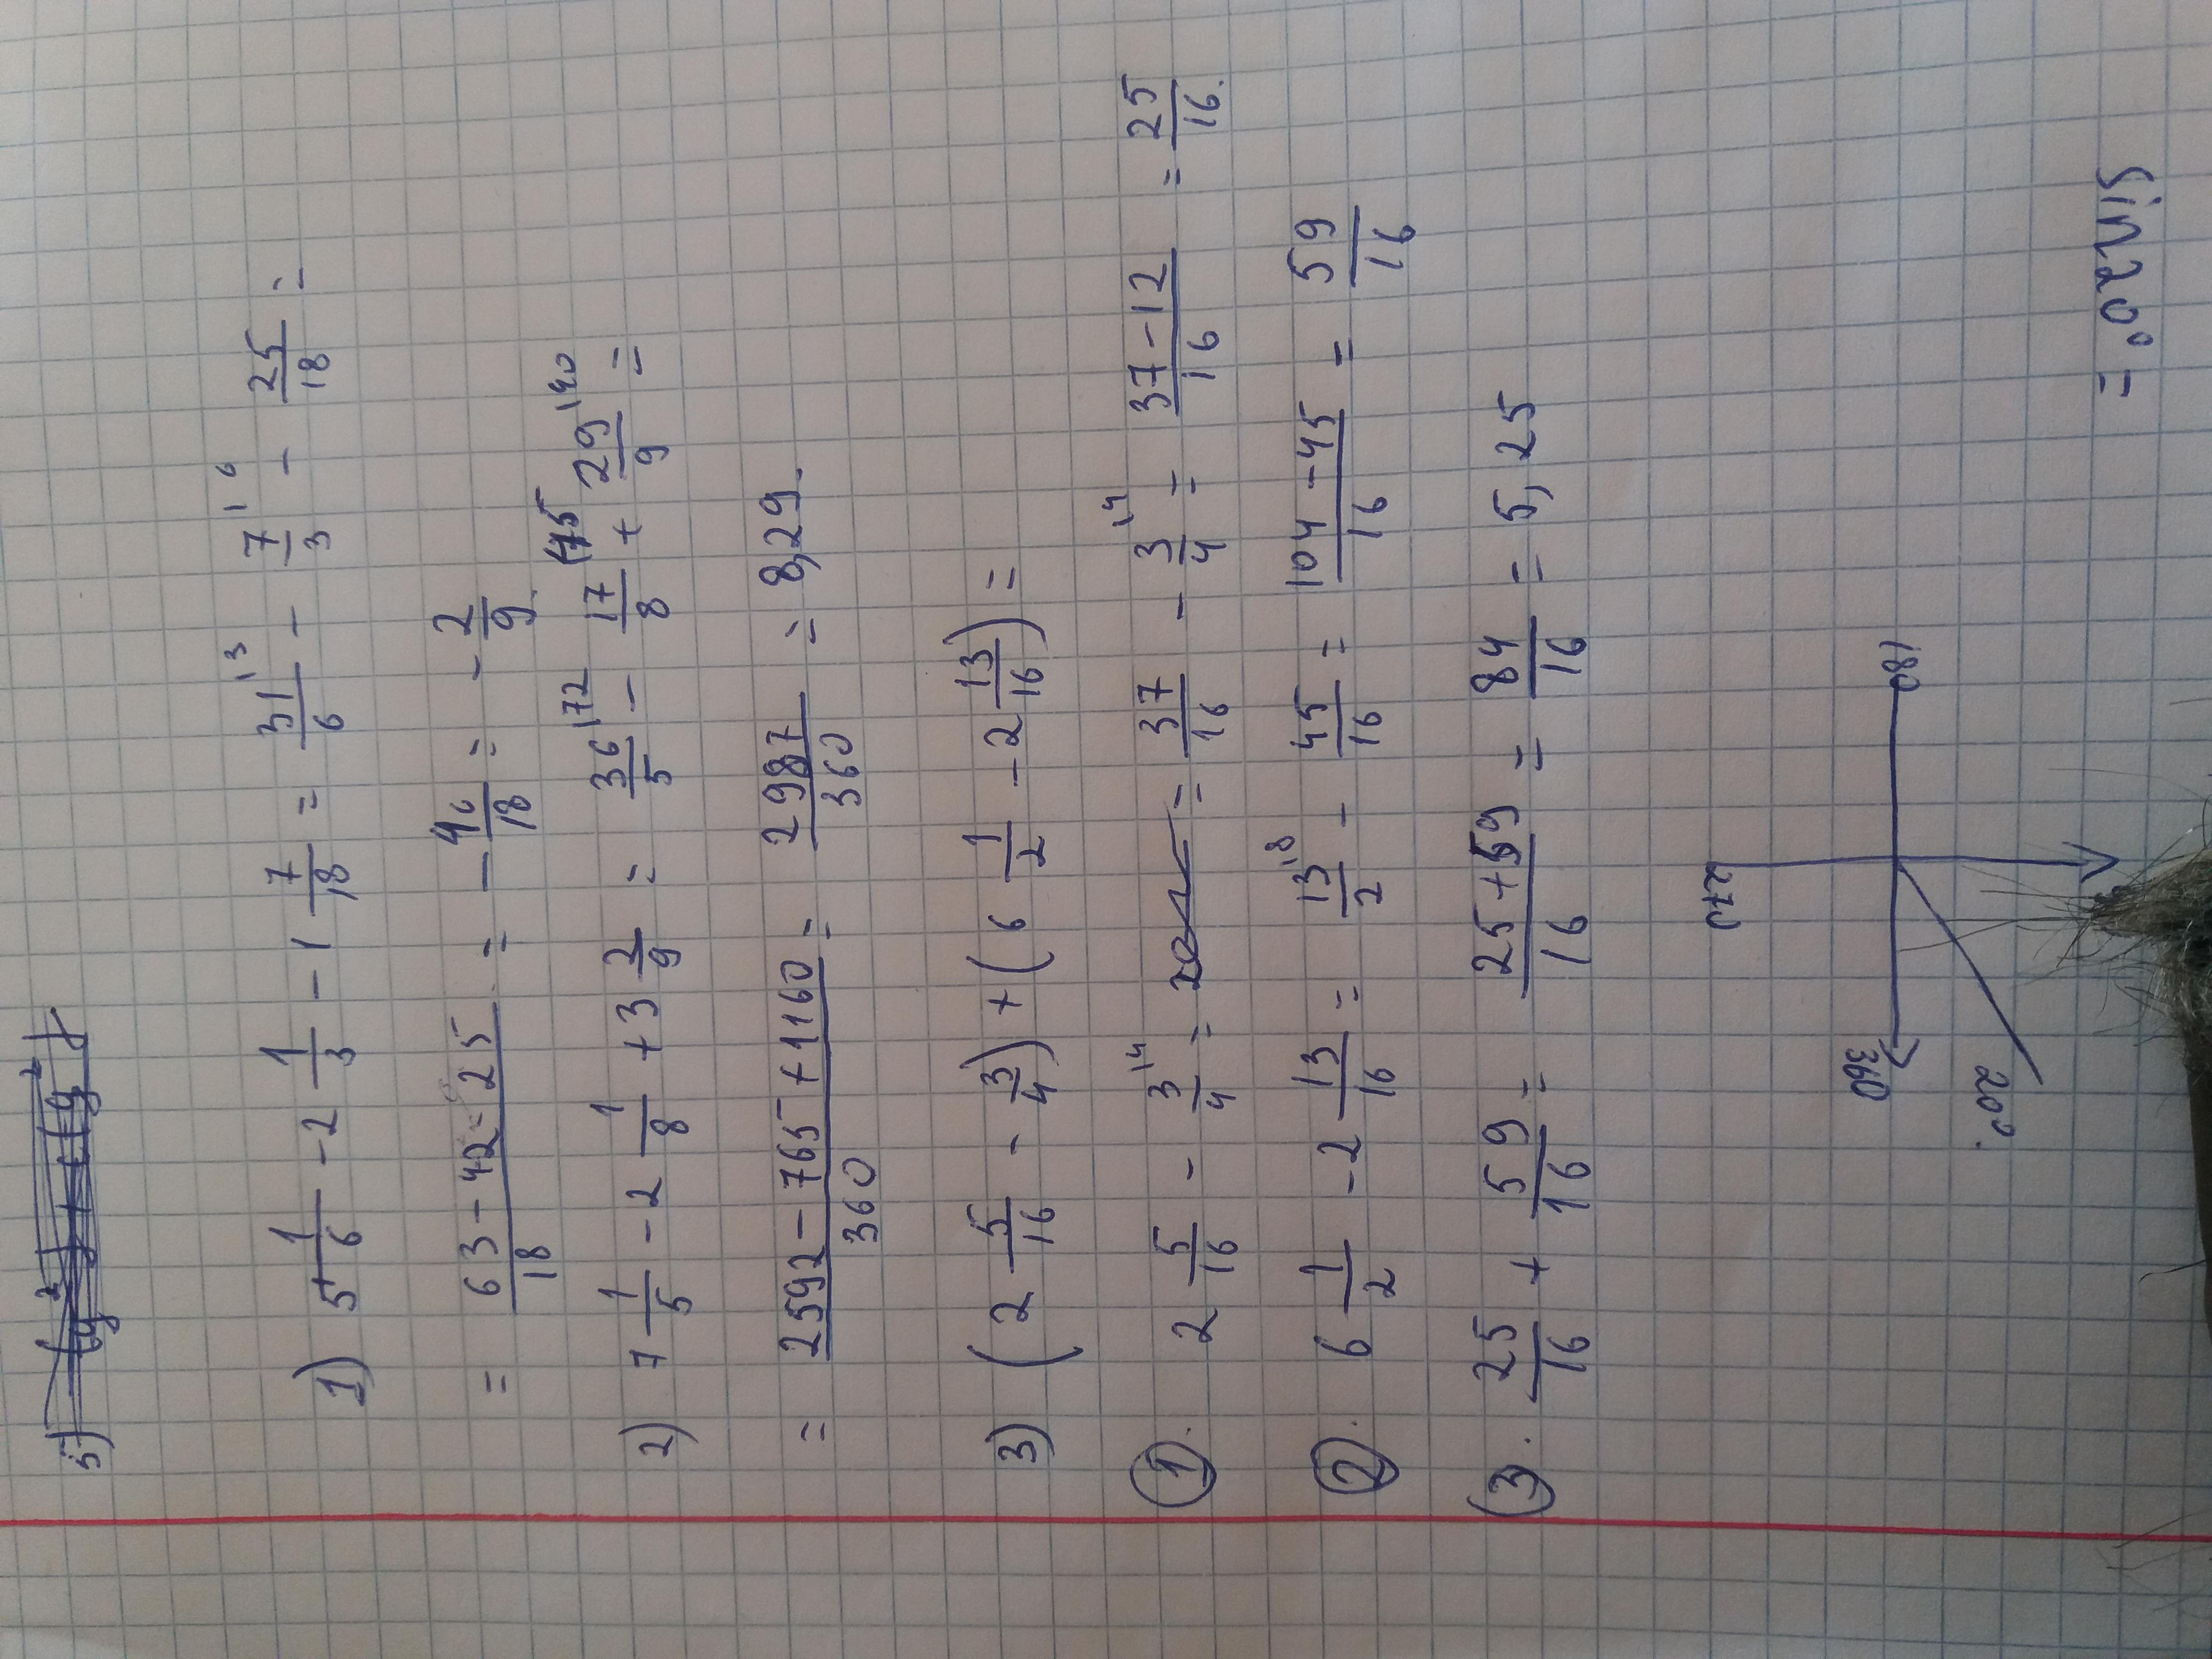 5)
1) 5 1/6 - 2 1/3 - 1 7/18 = 31/6 |3 - 7/3 |6 - 25/18 =
= 63-42-25/18 = -4/18 = -2/9.
2) 7 1/5 - 2 1/8 + 3 2/9 = 36/5 |72 - 17/8 |45 + 29/9 |40 =
= 2592-765+1160/360 = 2987/360 = 8,29.
3) (2 5/16 - 3/4) + (6 1/2 - 2 13/16) =
1. 2 5/16 - 3/4 |4 = = 37/16 - 3/4 |4 = 37-12/16 = 25/16.
2. 6 1/2 - 2 13/16 = 13/2 |8 - 45/16 = 104-45/16 = 59/16
3. 25/16 + 59/16 = 25+59/16 = 84/16 = 5,25
270
360
180
20°.
sin20° =